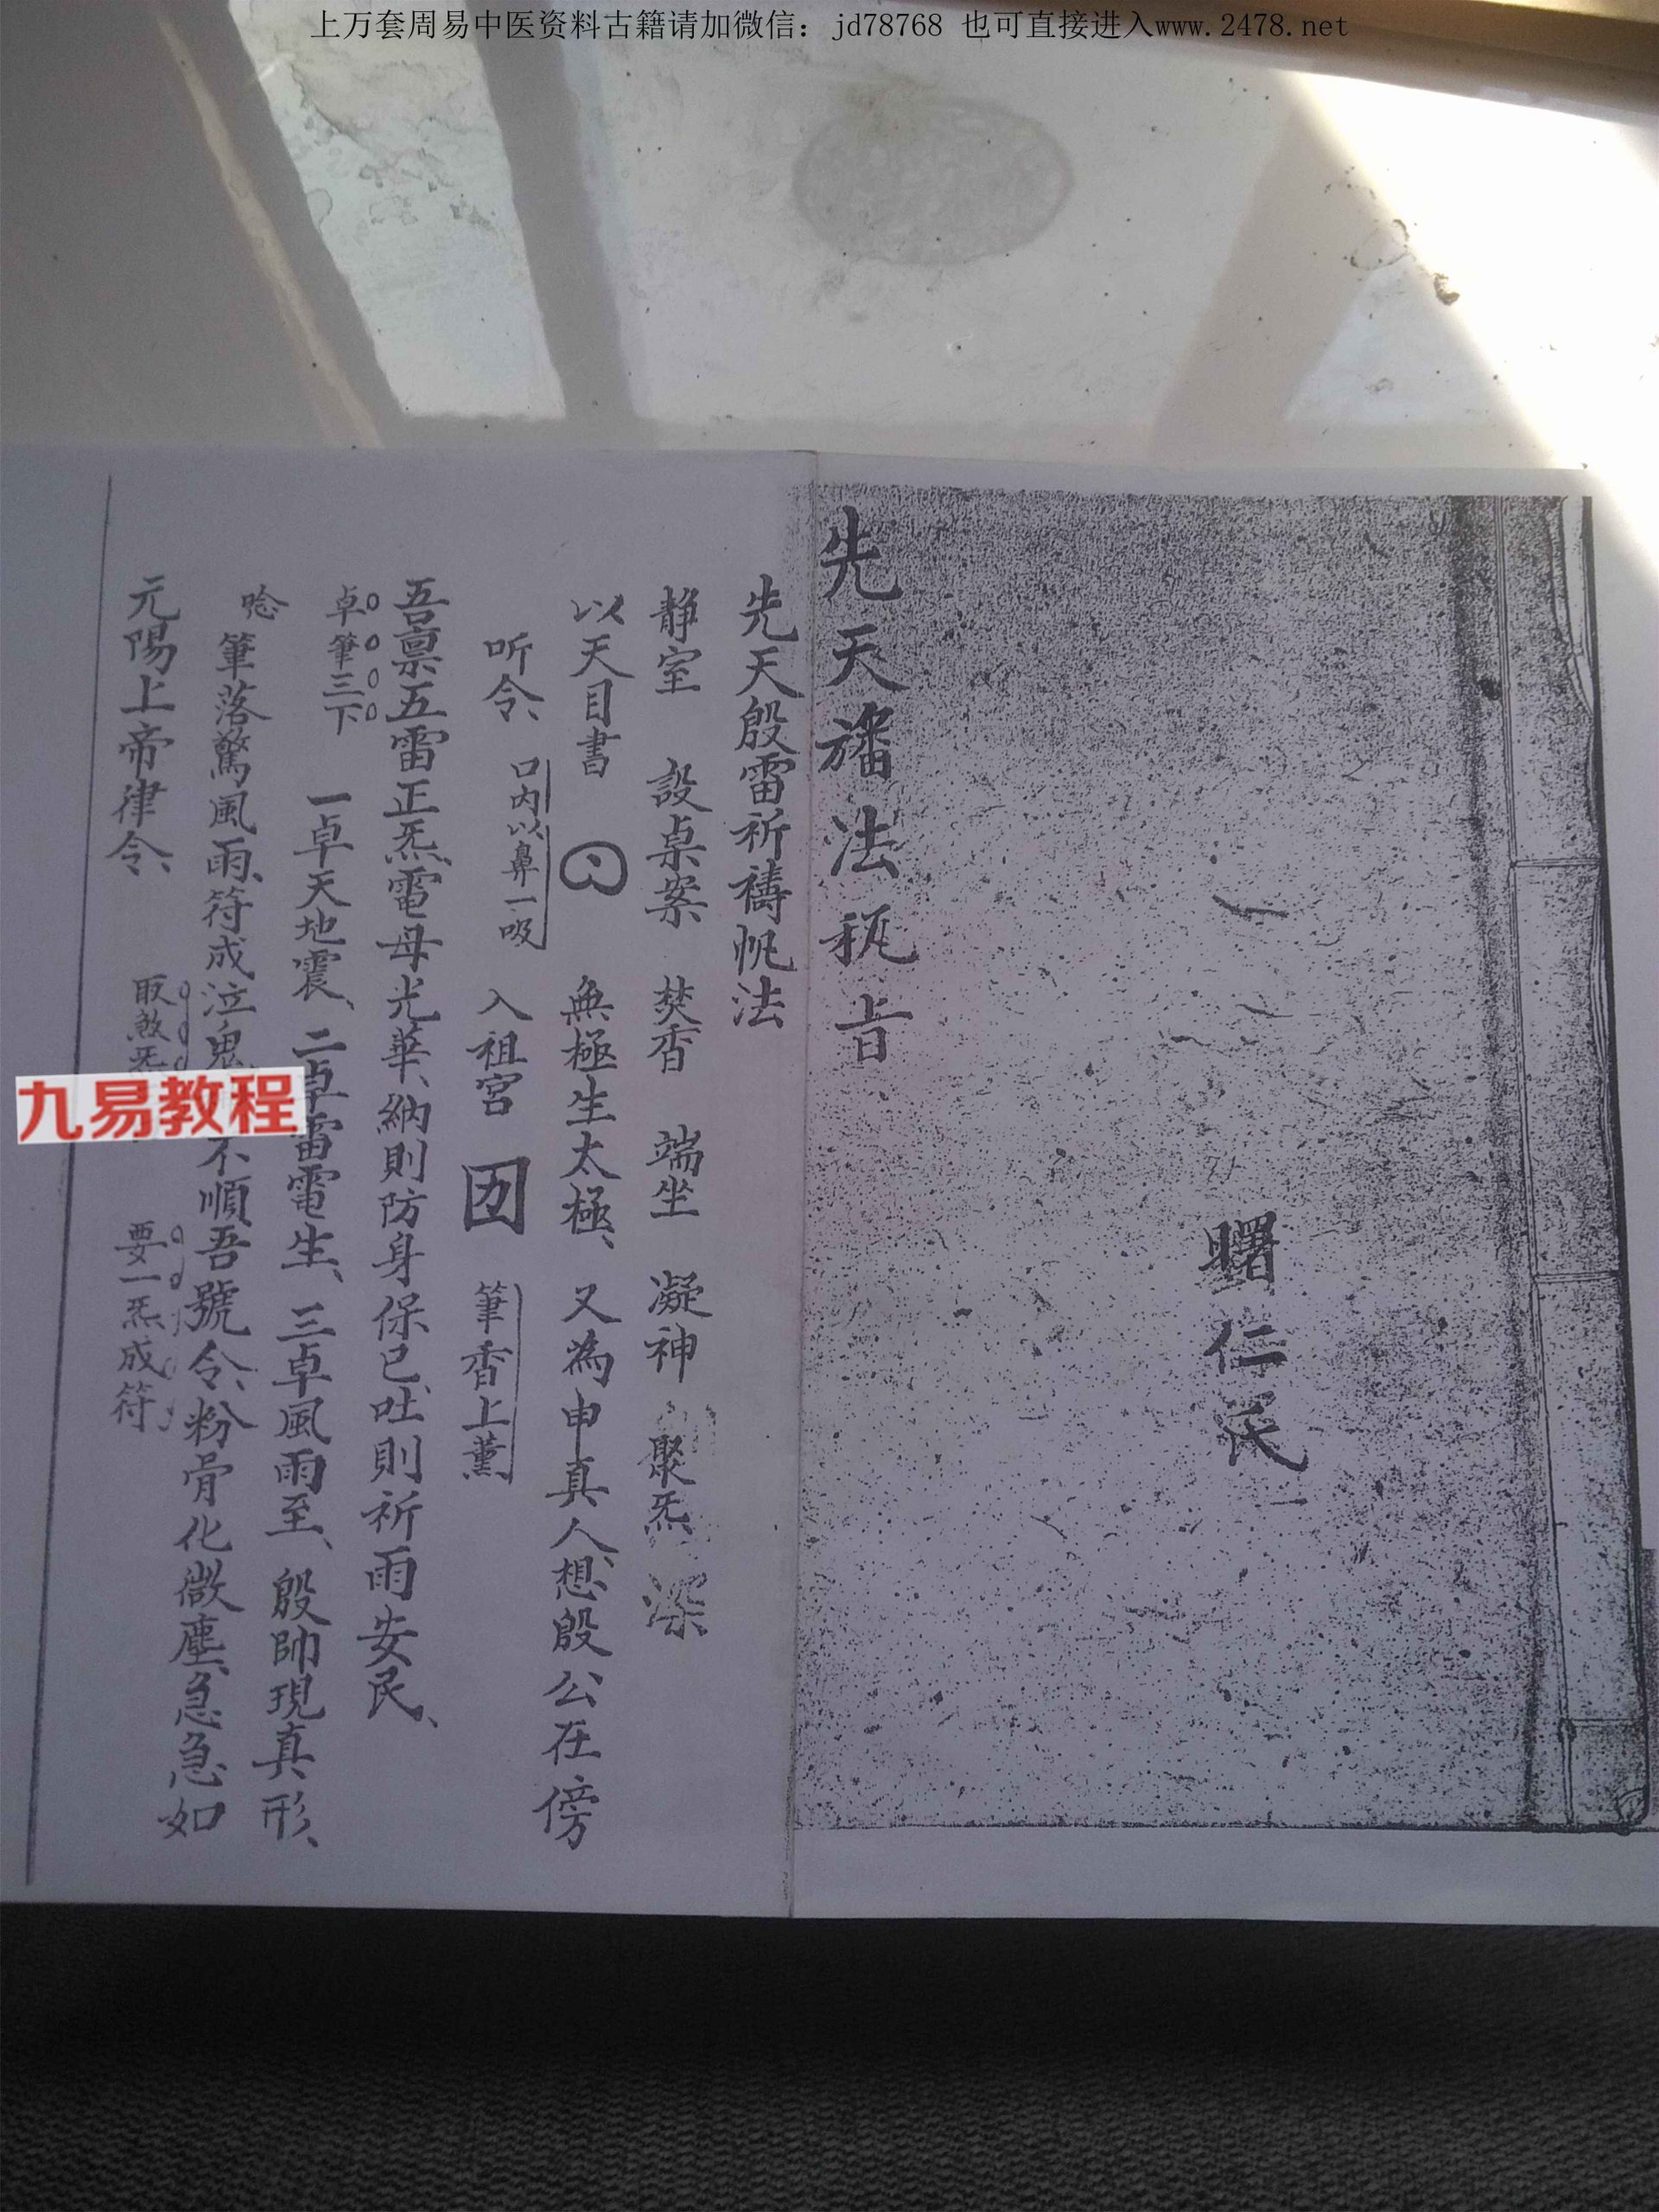 上万套周易中医资料古籍请加微信：jd78768 也可直接进入www.2478.net
先天旛法秘旨
曙仁民
先天殷雷祈禱帆法
静室 設桌案 焚香 端坐 凝神 聚炁
以天目書 無極生太極、又為申真人、想殷公在傍
听令、口内以鼻一吸 入祖宮 筆香上薰
吾禀五雷正炁、電母光華、納則防身保已、吐則祈雨安民、
卓筆三下 一卓天地震、二卓雷電生、三卓風雨至、殷帥現真形、
唸 筆落驚風雨、符成泣鬼 不順吾號令、粉骨化微塵、急急如
元陽上帝律令、 取煞炁 要一炁成符
九易教程